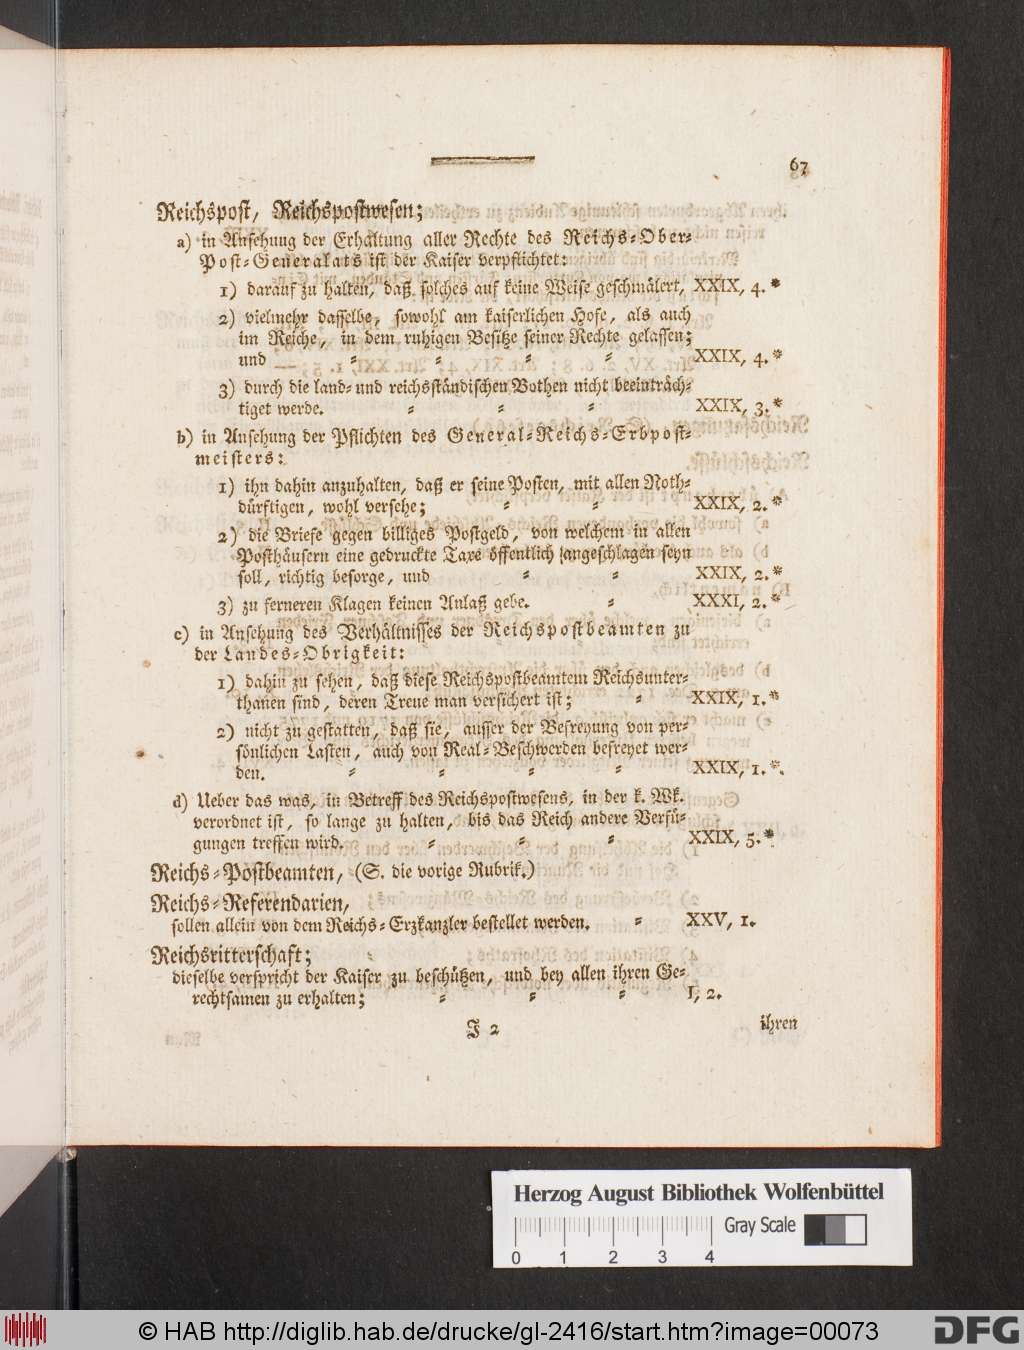 67
Reichspost, Reichspostwesen;
a) in Ansehung der Erhaltung aller Rechte des Reichs-Ober-
Post-Generalats ist der Kaiser verpflichtet:
1) darauf zu halten, daß solches auf keine Weise geschmälert, XXIX, 4.*
2) vielmehr dasselbe, sowohl am kaiserlichen Hofe, als auch
im Reiche, in dem ruhigen Besitze seiner Rechte gelassen;
und = = = = XXIX, 4.*
3) durch die land- und reichsständischen Bothen nicht beeinträch-
tiget werde. = = = XXIX, 3.*
b) in Ansehung der Pflichten des General-Reichs-Erbpost-
meisters:
1) ihn dahin anzuhalten, daß er seine Posten, mit allen Noth-
dürftigen, wohl versehe; = = XXIX, 2.*
2) die Briefe gegen billiges Postgeld, von welchem in allen
Posthäusern eine gedruckte Taxe öffentlich angeschlagen seyn
soll, richtig besorge, und = = XXIX, 2.*
3) zu ferneren Klagen keinen Anlaß gebe. = XXXI, 2.*
c) in Ansehung des Verhältnisses der Reichspostbeamten zu
der Landes-Obrigkeit:
1) dahin zu sehen, daß diese Reichspostbeamtem Reichsunter-
thanen sind, deren Treue man versichert ist; = XXIX, 1.*
2) nicht zu gestatten, daß sie, ausser der Befreyung von per-
sönlichen Lasten, auch von Real-Beschwerden befreyet wer-
den. = = = = XXIX, 1.*.
d) Ueber das was, in Betreff des Reichspostwesens, in der k. Wk.
verordnet ist, so lange zu halten, bis das Reich andere Verfü-
gungen treffen wird. = = = XXIX, 5.*
Reichs-Postbeamten, (S. die vorige Rubrik.)
Reichs-Referendarien,
sollen allein von dem Reichs-Erzkanzler bestellet werden. = XXV, 1.
Reichsritterschaft;
dieselbe verspricht der Kaiser zu beschützen, und bey allen ihren Ge-
rechtsamen zu erhalten; = = = I, 2.
J 2 ihren
Herzog August Bibliothek Wolfenbüttel
Gray Scale
0 1 2 3 4
© HAB http://diglib.hab.de/drucke/gl-2416/start.htm?image=00073
DFG